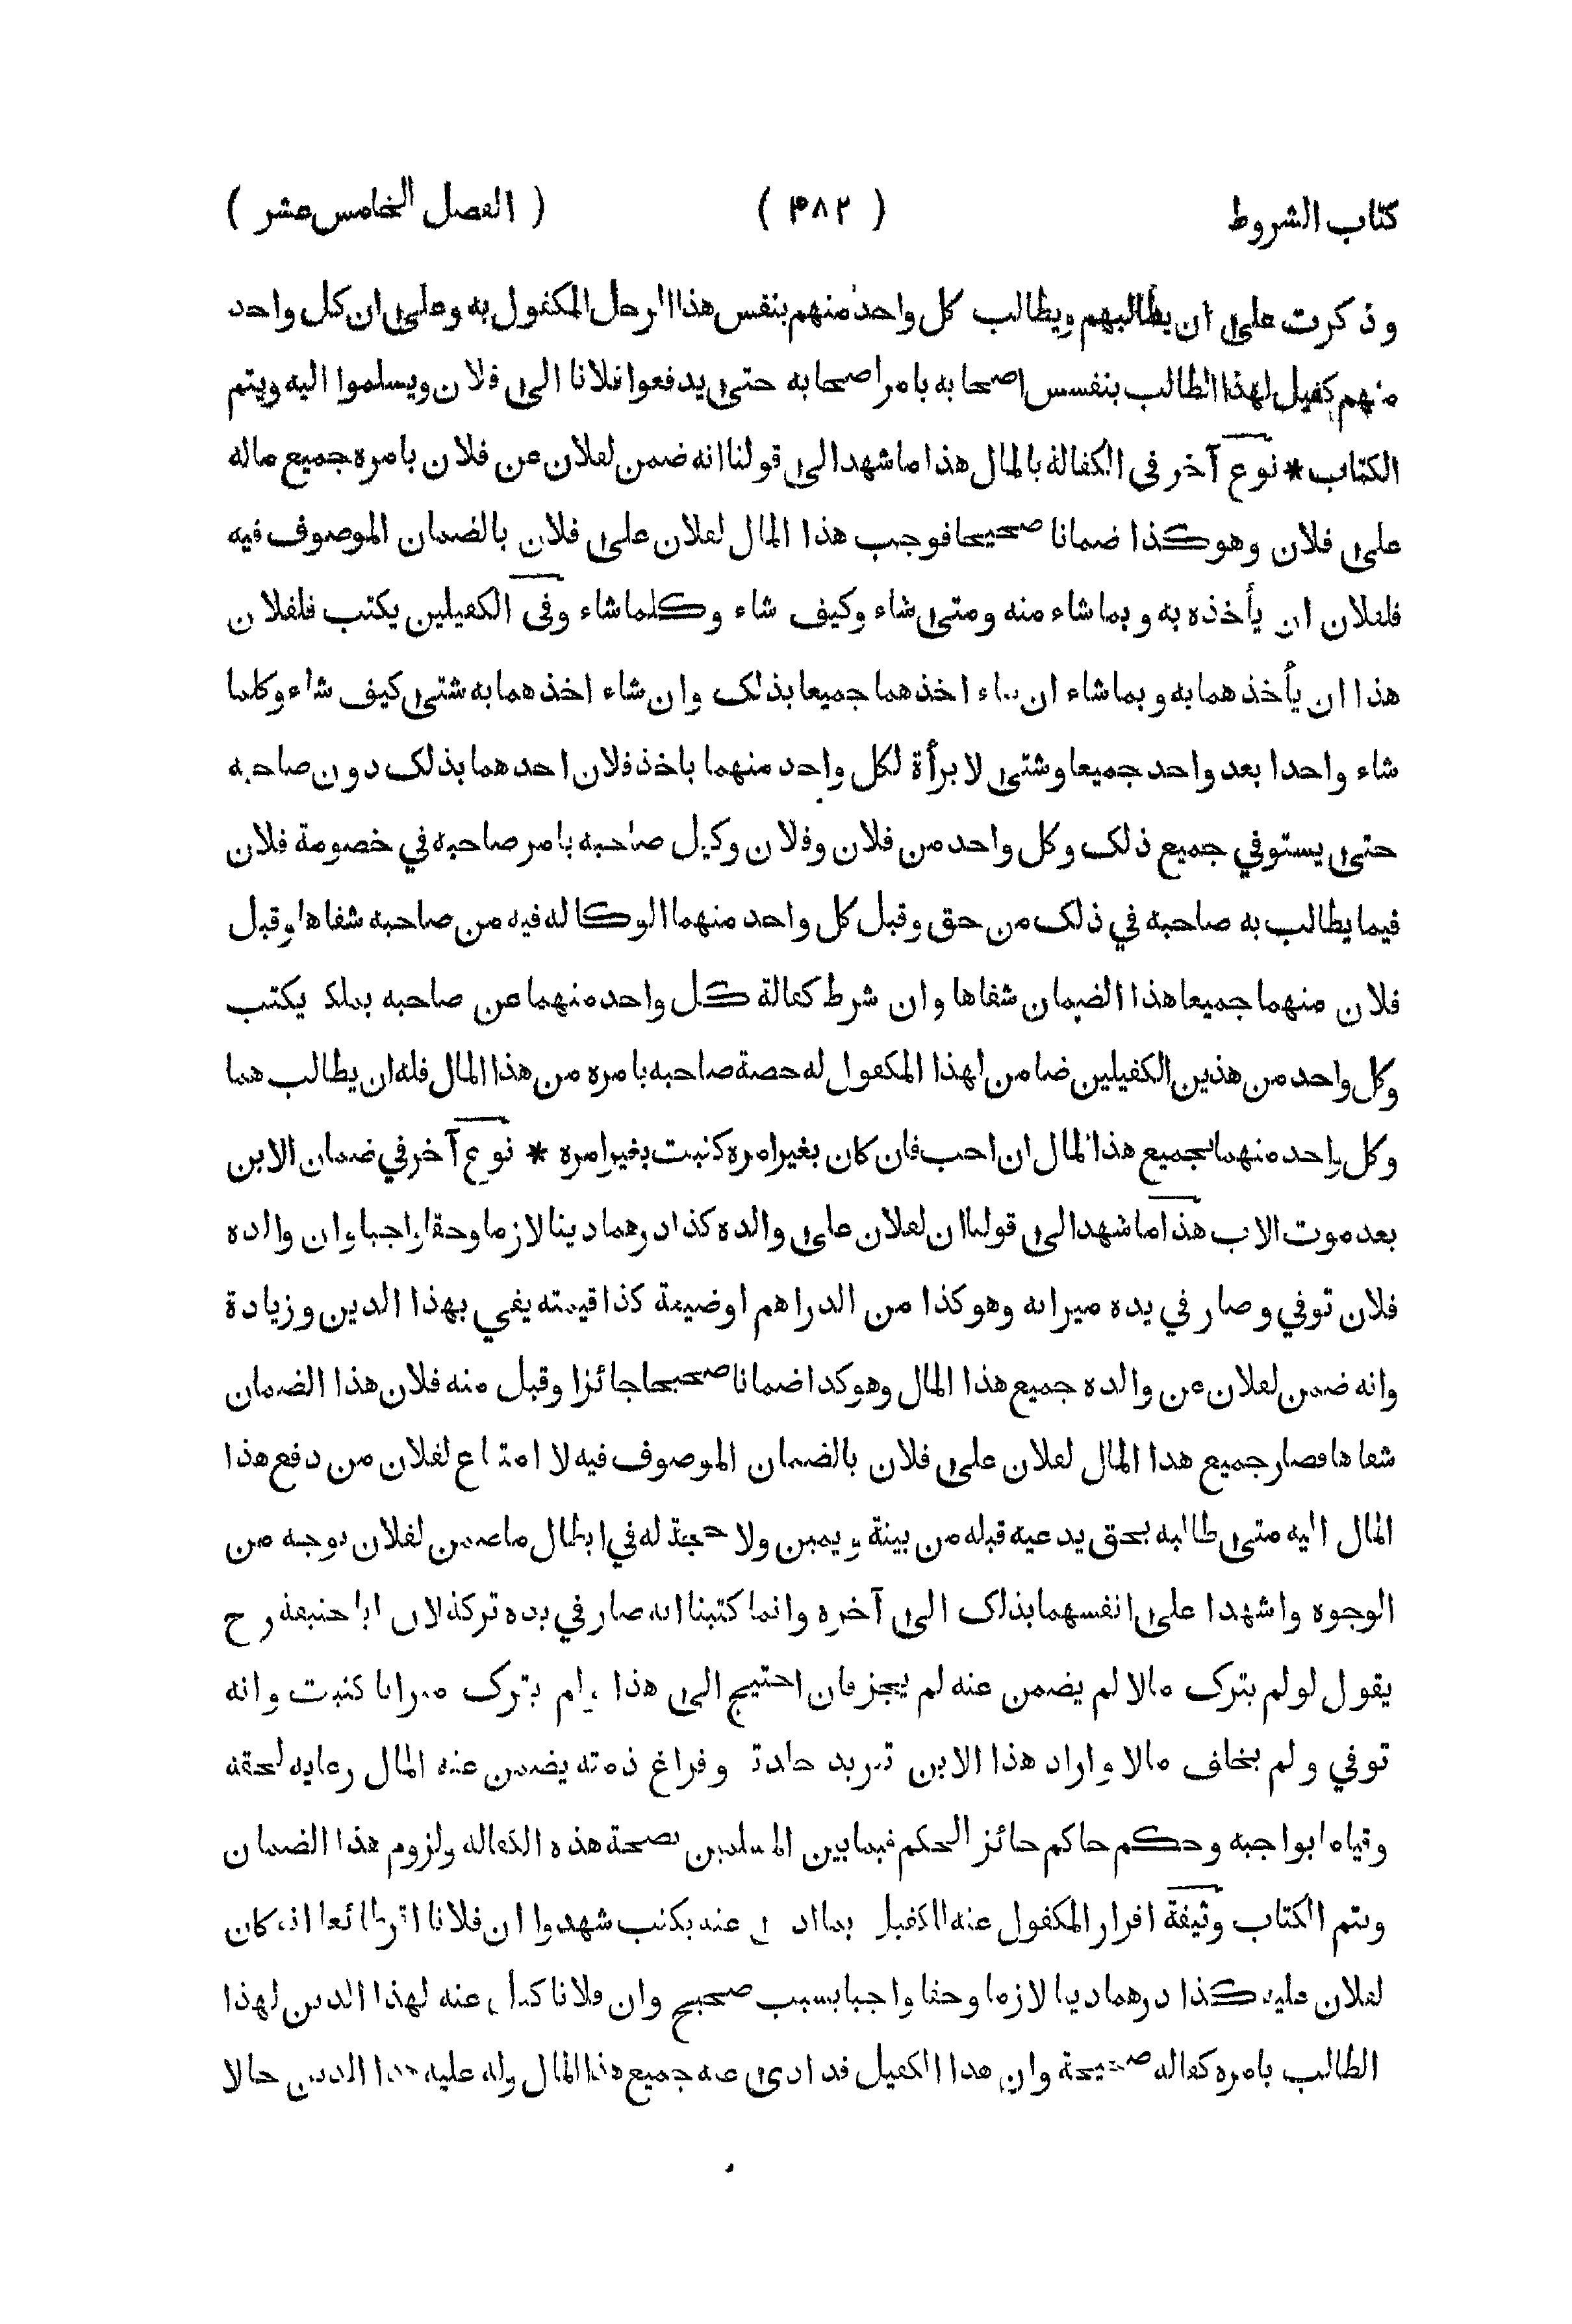 كتاب الشروط ( ۴۸۲ ) ( الفصل الخامس عشر )
وذكرت على ان يطالبهم ويطالب كل واحد منهم بنفس هذا الرجل المكفول به وعلى ان كل واحد
منهم كفيل لهذا الطالب بنفس اصحابه بامر اصحابه حتى يدفعوا فلانا الى فلان ويسلموا اليه ويتم
الكتاب * نوع آخر في الكفالة بالمال هذا ما شهد الى قولنا انه ضمن لفلان عن فلان بامره جميع ماله
على فلان وهو كذا ضمانا صحيحا فوجب هذا المال لفلان على فلان بالضمان الموصوف فيه
فلفلان ان يأخذه به وبما شاء منه ومتى شاء وكيف شاء وكلما شاء وفى الكفيلين يكتب فلفلان
هذا ان يأخذهما به وبما شاء ان شاء اخذهما جميعا بذلك وان شاء اخذهما به شتى كيف شاء وكلما
شاء واحدا بعد واحد جميعا وشتى لا برأة لكل واحد منهما باخذ فلان احدهما بذلك دون صاحبه
حتى يستوفي جميع ذلك وكل واحد من فلان وفلان وكيل صاحبه بامر صاحبه في خصومة فلان
فيما يطالب به صاحبه في ذلك من حق وقبل كل واحد منهما الوكاله فيه من صاحبه شفاها وقبل
فلان منهما جميعا هذا الضمان شفاها وان شرط كفالة كل واحد منهما عن صاحبه يكتب
وكل واحد من هذين الكفيلين ضامن لهذا المكفول له حصة صاحبه بامره من هذا المال فله ان يطالب هما
وكل واحد منهما بجميع هذا المال ان احب فان كان بغير امره كتبت بغير امره * نوع آخر في ضمان الابن
بعد موت الاب هذا ما شهد الى قولنا ان لفلان على والده كذا درهما دينا لازما وحقا واجبا وان والده
فلان توفي وصار في يده ميراثه وهو كذا من الدراهم او ضيعة كذا قيمته يفي بهذا الدين وزيادة
وانه ضمن لفلان عن والده جميع هذا المال وهو كذا ضمانا صحيحا جائزا وقبل منه فلان هذا الضمان
شفاها فصار جميع هذا المال لفلان على فلان بالضمان الموصوف فيه لا امتناع لفلان من دفع هذا
المال اليه متى طالبه بحق يدعيه قبله من بينة ويمين ولا حجة له في ابطال ما ضمن لفلان بوجه من
الوجوه واشهدا على انفسهما بذلك الى آخره وانما كتبنا انه صار في يده تركة لان ابا حنيفة رح
يقول لو لم يترك مالا لم يضمن عنه لم يجز فان احتيج الى هذا ولم يترك ميراثا كتبت وانه
توفي ولم يخلف مالا واراد هذا الابن تبريد وفراغ ذمته يضمن عنه المال رعاية لحقه
وقياما بواجبه وحكم حاكم جائز الحكم فيما بين المسلمين بصحة هذه الكفاله ولزوم هذا الضمان
ويتم الكتاب وثيقة اقرار المكفول عنه للكفيل بما ادى عنه يكتب شهدوا ان فلانا اقر طائعا انه كان
لفلان عليه كذا درهما دينا لازما وحقا واجبا بسبب صحيح وان فلانا كفل عنه لهذا الدين لهذا
الطالب بامره كفاله صحيحة وان هذا الكفيل قد ادى عنه جميع هذا المال وله عليه هذا الدين حالا